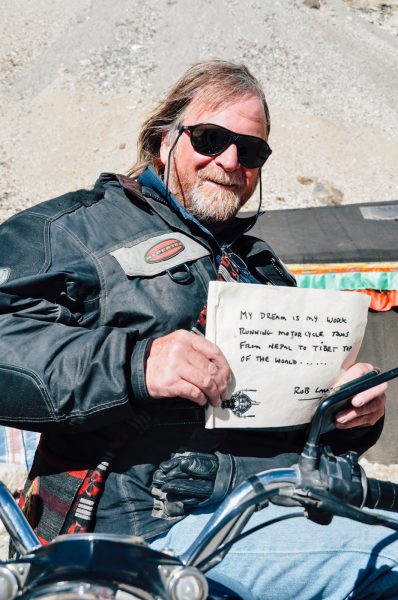 MY DREAM IS MY WORK
RUNNING MOTORCYCLE TOURS
FROM NEPAL TO TIBET TOP
OF THE WORLD......
ROB